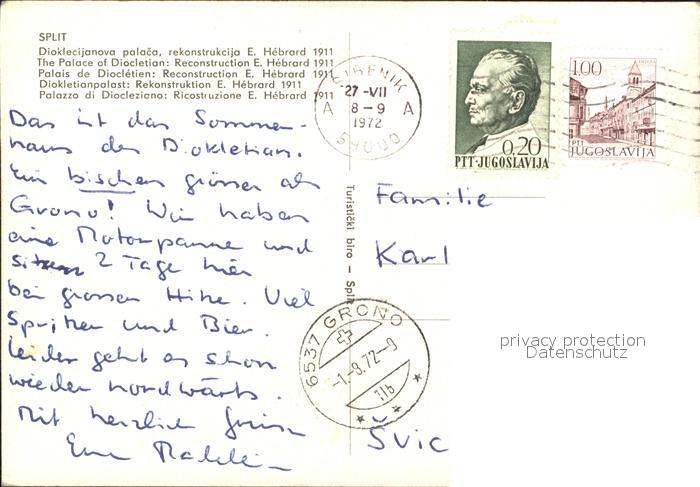 SPLIT
Dioklecijanova palača, rekonstrukcija E. Hébrard 1911
The Palace of Diocletian: Reconstruction E. Hébrard 1911
Palais de Dioclétien: Reconstruction E. Hébrard 1911
Diokletianpalast: Rekonstruktion E. Hébrard 1911
Palazzo di Diocleziano: Ricostruzione E. Hébrard 1911
Das ist das Sommer-
haus des Diokletian.
Ein bischen grösser als
Grono! Wir haben
eine Motorpanne und
sitzen 2 Tage hier
bei grosser Hitze. Viel
Spritzer und Bier.
Leider geht es schon
wieder nordwärts.
Mit herzlich Grüssen
ŠIBENIK
27-VII
A 8-9 A
1972
59000
0.20
PTT-JUGOSLAVIJA
1.00
PTT
JUGOSLAVIJA
Turistički biro — Split
Familie
Karl
6537 GRONO
-1.-8.72-9
ŠVIC
privacy protection
Datenschutz